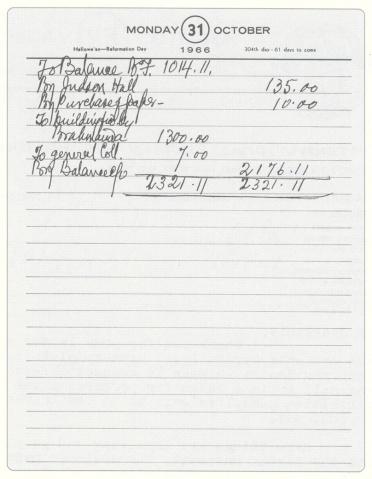 MONDAY 31 OCTOBER
Hallowe'en—Reformation Day 1966 304th day - 61 days to come
To Balance B.F. 1014.11.
By Judson Hall 135.00
By Purchase of paper - 10.00
To building fund by
Brahmanda 1300.00
To general Coll. 7.00
By Balance c/o 2176.11
2321.11 2321.11